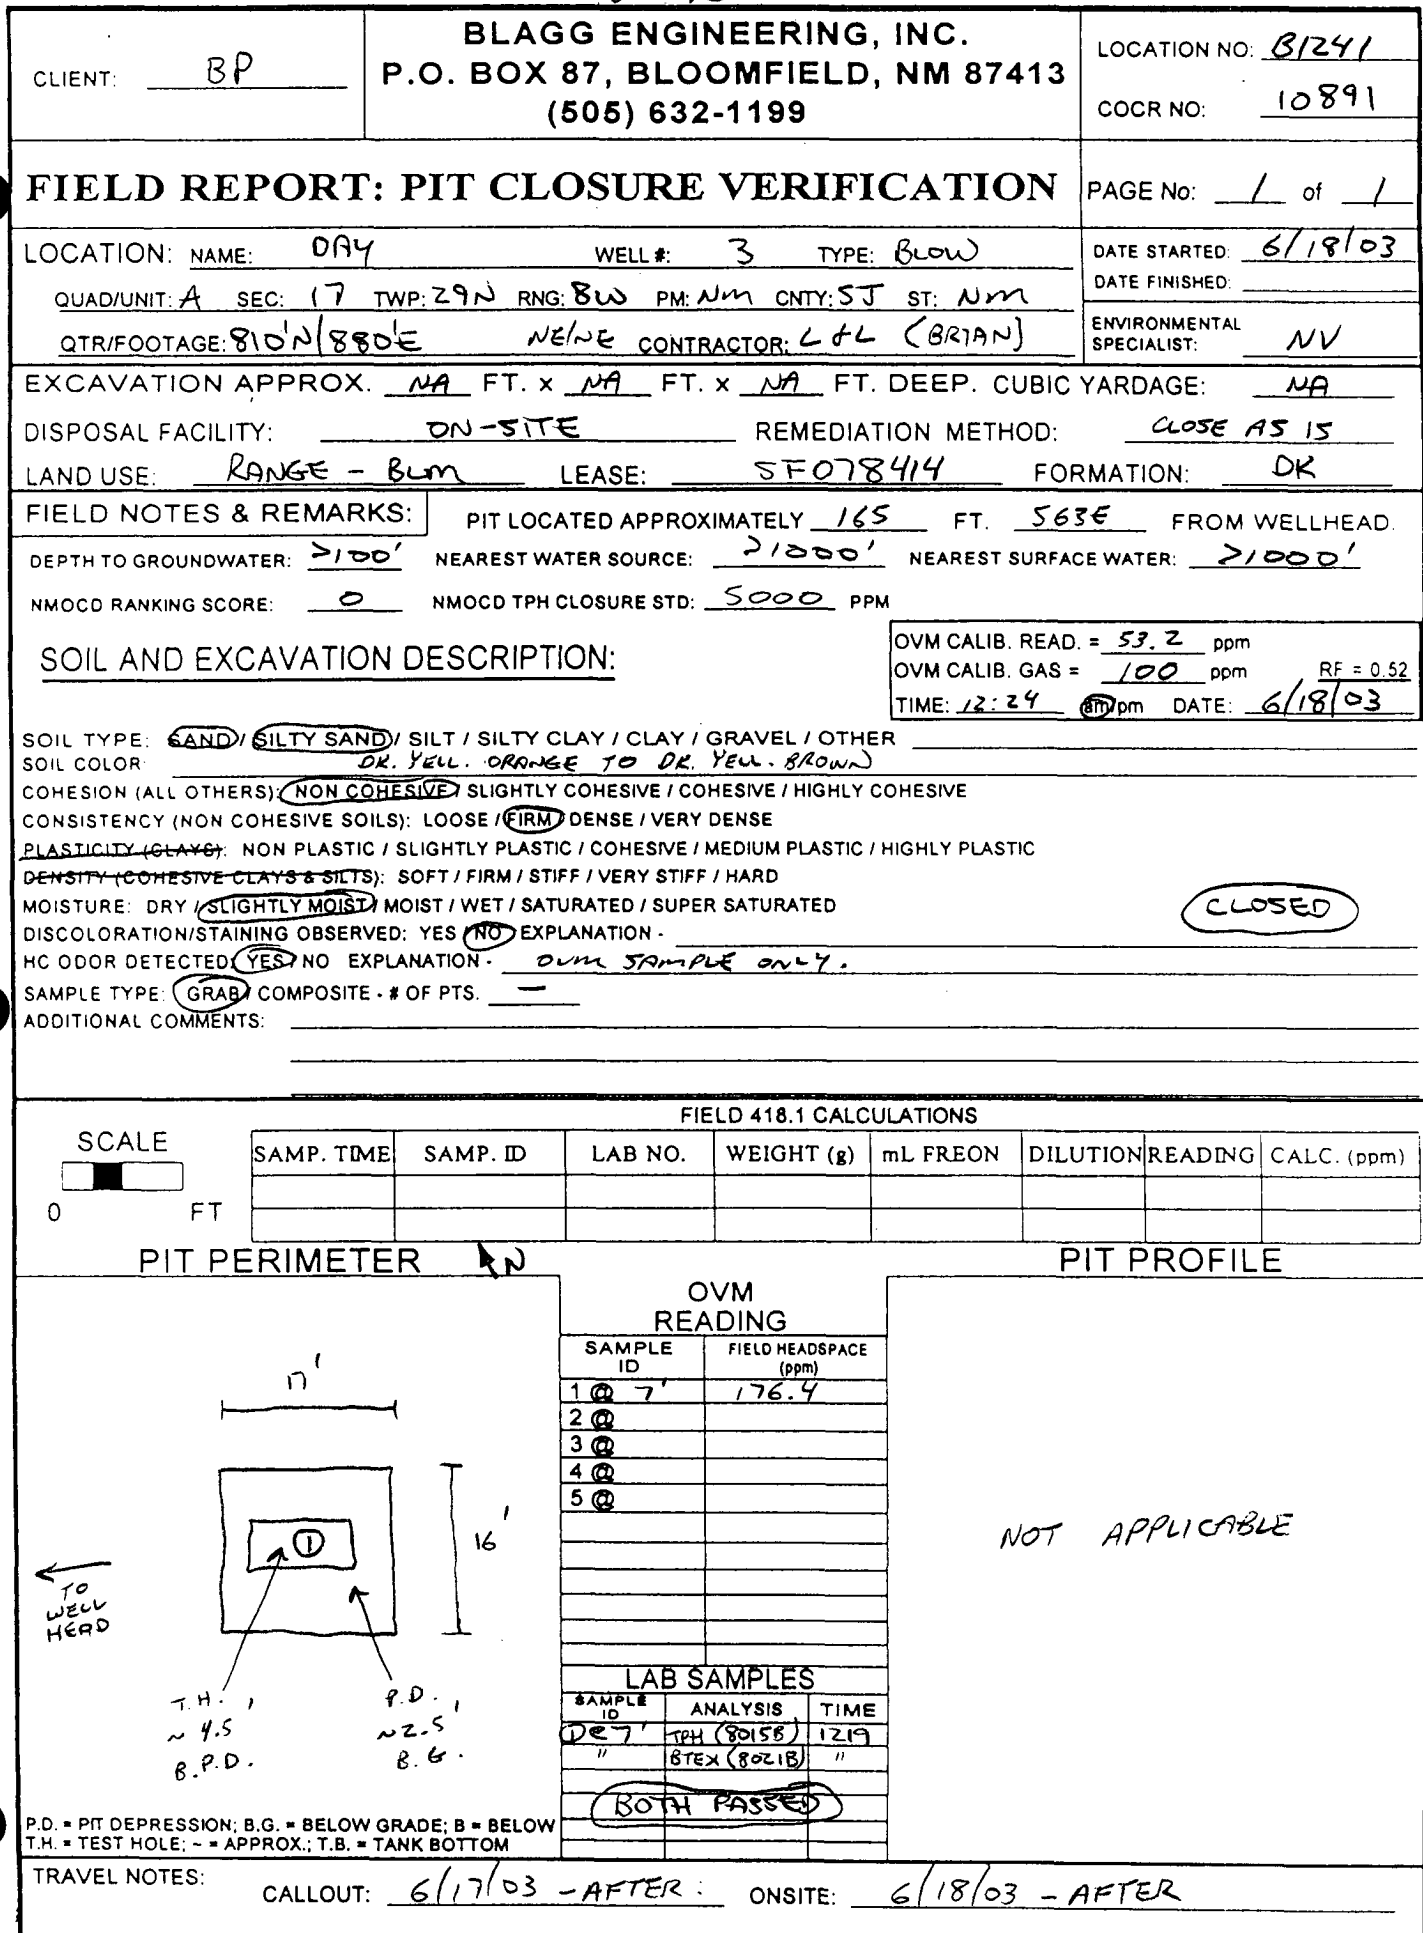 BLAGG ENGINEERING, INC.
P.O. BOX 87, BLOOMFIELD, NM 87413
(505) 632-1199
CLIENT: BP
LOCATION NO: B1241
COCR NO: 10891
FIELD REPORT: PIT CLOSURE VERIFICATION
PAGE No: 1 of 1
LOCATION: NAME: DAY WELL #: 3 TYPE: BLOW
QUAD/UNIT: A SEC: 17 TWP: 29N RNG: 8W PM: NM CNTY: SJ ST: NM
QTR/FOOTAGE: 810'N/880'E NE/NE CONTRACTOR: L&L (BRIAN)
DATE STARTED: 6/18/03
DATE FINISHED:
ENVIRONMENTAL
SPECIALIST: NV
EXCAVATION APPROX. NA FT. x NA FT. x NA FT. DEEP. CUBIC YARDAGE: NA
DISPOSAL FACILITY: ON-SITE REMEDIATION METHOD: CLOSE AS IS
LAND USE: RANGE - BLM LEASE: SF078414 FORMATION: DK
FIELD NOTES & REMARKS: PIT LOCATED APPROXIMATELY 165 FT. S63E FROM WELLHEAD.
DEPTH TO GROUNDWATER: >100' NEAREST WATER SOURCE: >1000' NEAREST SURFACE WATER: >1000'
NMOCD RANKING SCORE: 0 NMOCD TPH CLOSURE STD: 5000 PPM
SOIL AND EXCAVATION DESCRIPTION:
OVM CALIB. READ. = 53.2 ppm
OVM CALIB. GAS = 100 ppm RF = 0.52
TIME: 12:24 am/pm DATE: 6/18/03
SOIL TYPE: SAND / SILTY SAND / SILT / SILTY CLAY / CLAY / GRAVEL / OTHER
SOIL COLOR: DK. YELL. ORANGE TO DK. YELL. BROWN
COHESION (ALL OTHERS): NON COHESIVE / SLIGHTLY COHESIVE / COHESIVE / HIGHLY COHESIVE
CONSISTENCY (NON COHESIVE SOILS): LOOSE / FIRM / DENSE / VERY DENSE
PLASTICITY (CLAYS): NON PLASTIC / SLIGHTLY PLASTIC / COHESIVE / MEDIUM PLASTIC / HIGHLY PLASTIC
DENSITY (COHESIVE CLAYS & SILTS): SOFT / FIRM / STIFF / VERY STIFF / HARD
MOISTURE: DRY / SLIGHTLY MOIST / MOIST / WET / SATURATED / SUPER SATURATED
CLOSED
DISCOLORATION/STAINING OBSERVED: YES / NO EXPLANATION -
HC ODOR DETECTED: YES / NO EXPLANATION - OVM SAMPLE ONLY.
SAMPLE TYPE: GRAB / COMPOSITE - # OF PTS. —
ADDITIONAL COMMENTS:
FIELD 418.1 CALCULATIONS
SCALE
0 FT
SAMP. TIME SAMP. ID LAB NO. WEIGHT (g) mL FREON DILUTION READING CALC. (ppm)
PIT PERIMETER N
17'
16'
1
TO
WELL
HEAD
T.H.
~ 4.5'
B.P.D.
P.D.
~2.5'
B.G.
P.D. = PIT DEPRESSION; B.G. = BELOW GRADE; B = BELOW
T.H. = TEST HOLE; ~ = APPROX.; T.B. = TANK BOTTOM
OVM
READING
SAMPLE ID FIELD HEADSPACE (ppm)
1 @ 7' 176.4
2 @
3 @
4 @
5 @
LAB SAMPLES
SAMPLE ID ANALYSIS TIME
1@7' TPH (8015B) 1219
" BTEX (8021B) "
BOTH PASSED
PIT PROFILE
NOT APPLICABLE
TRAVEL NOTES: CALLOUT: 6/17/03 - AFTER. ONSITE: 6/18/03 - AFTER